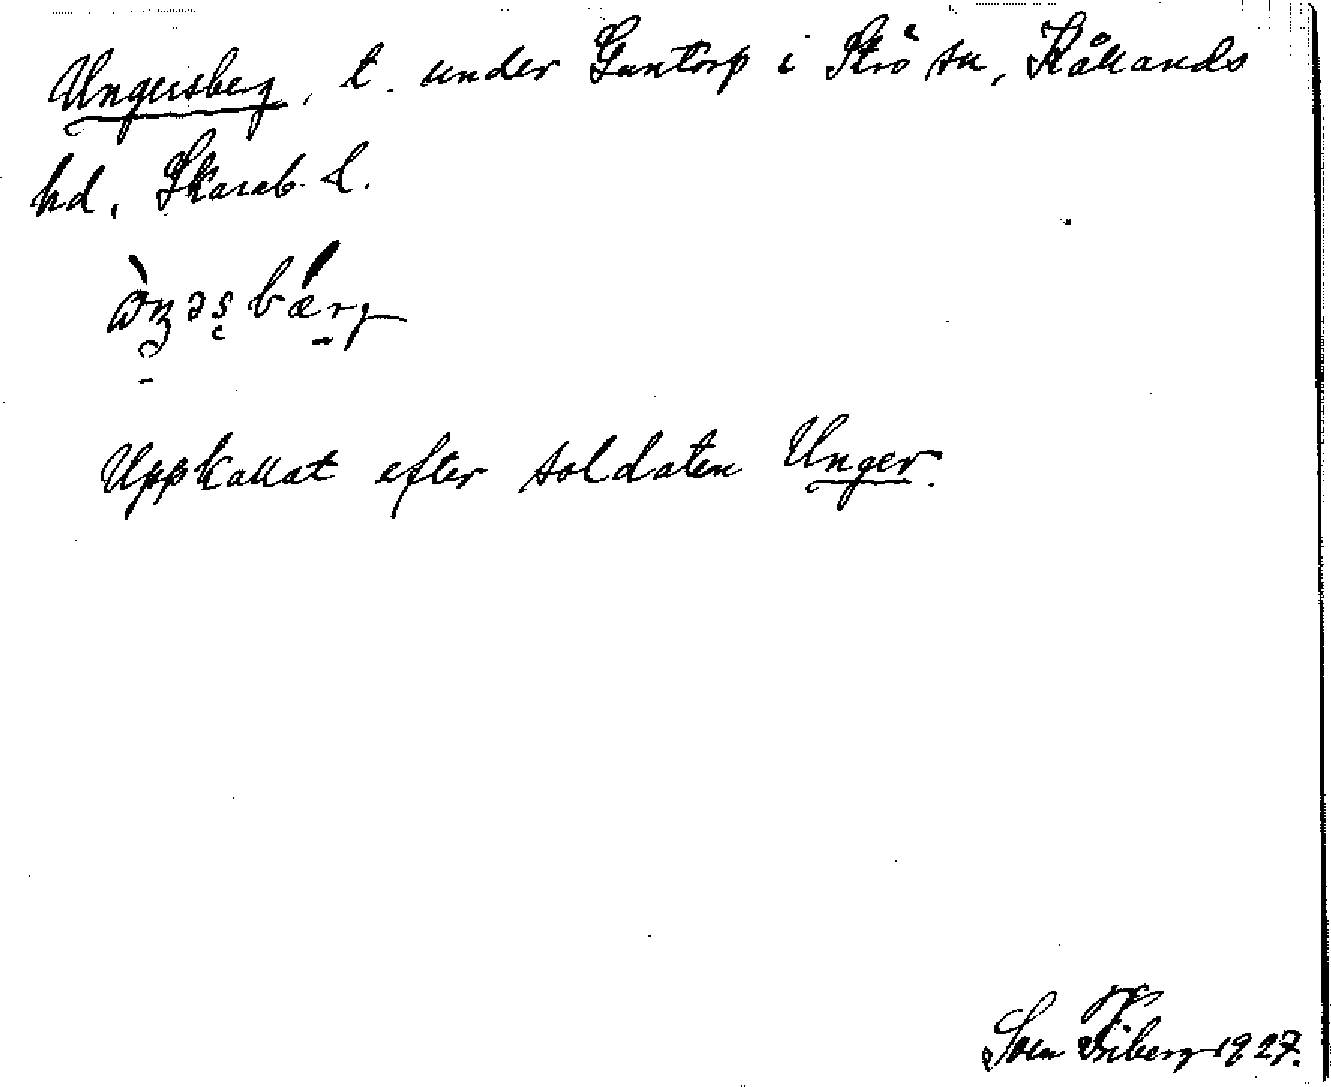 Ungersberg, t. under Guntorp i Strö sn, Kållands
hd, Skarab. l.
Uppkallat efter soldaten Unger.
Sven Friberg 1927.